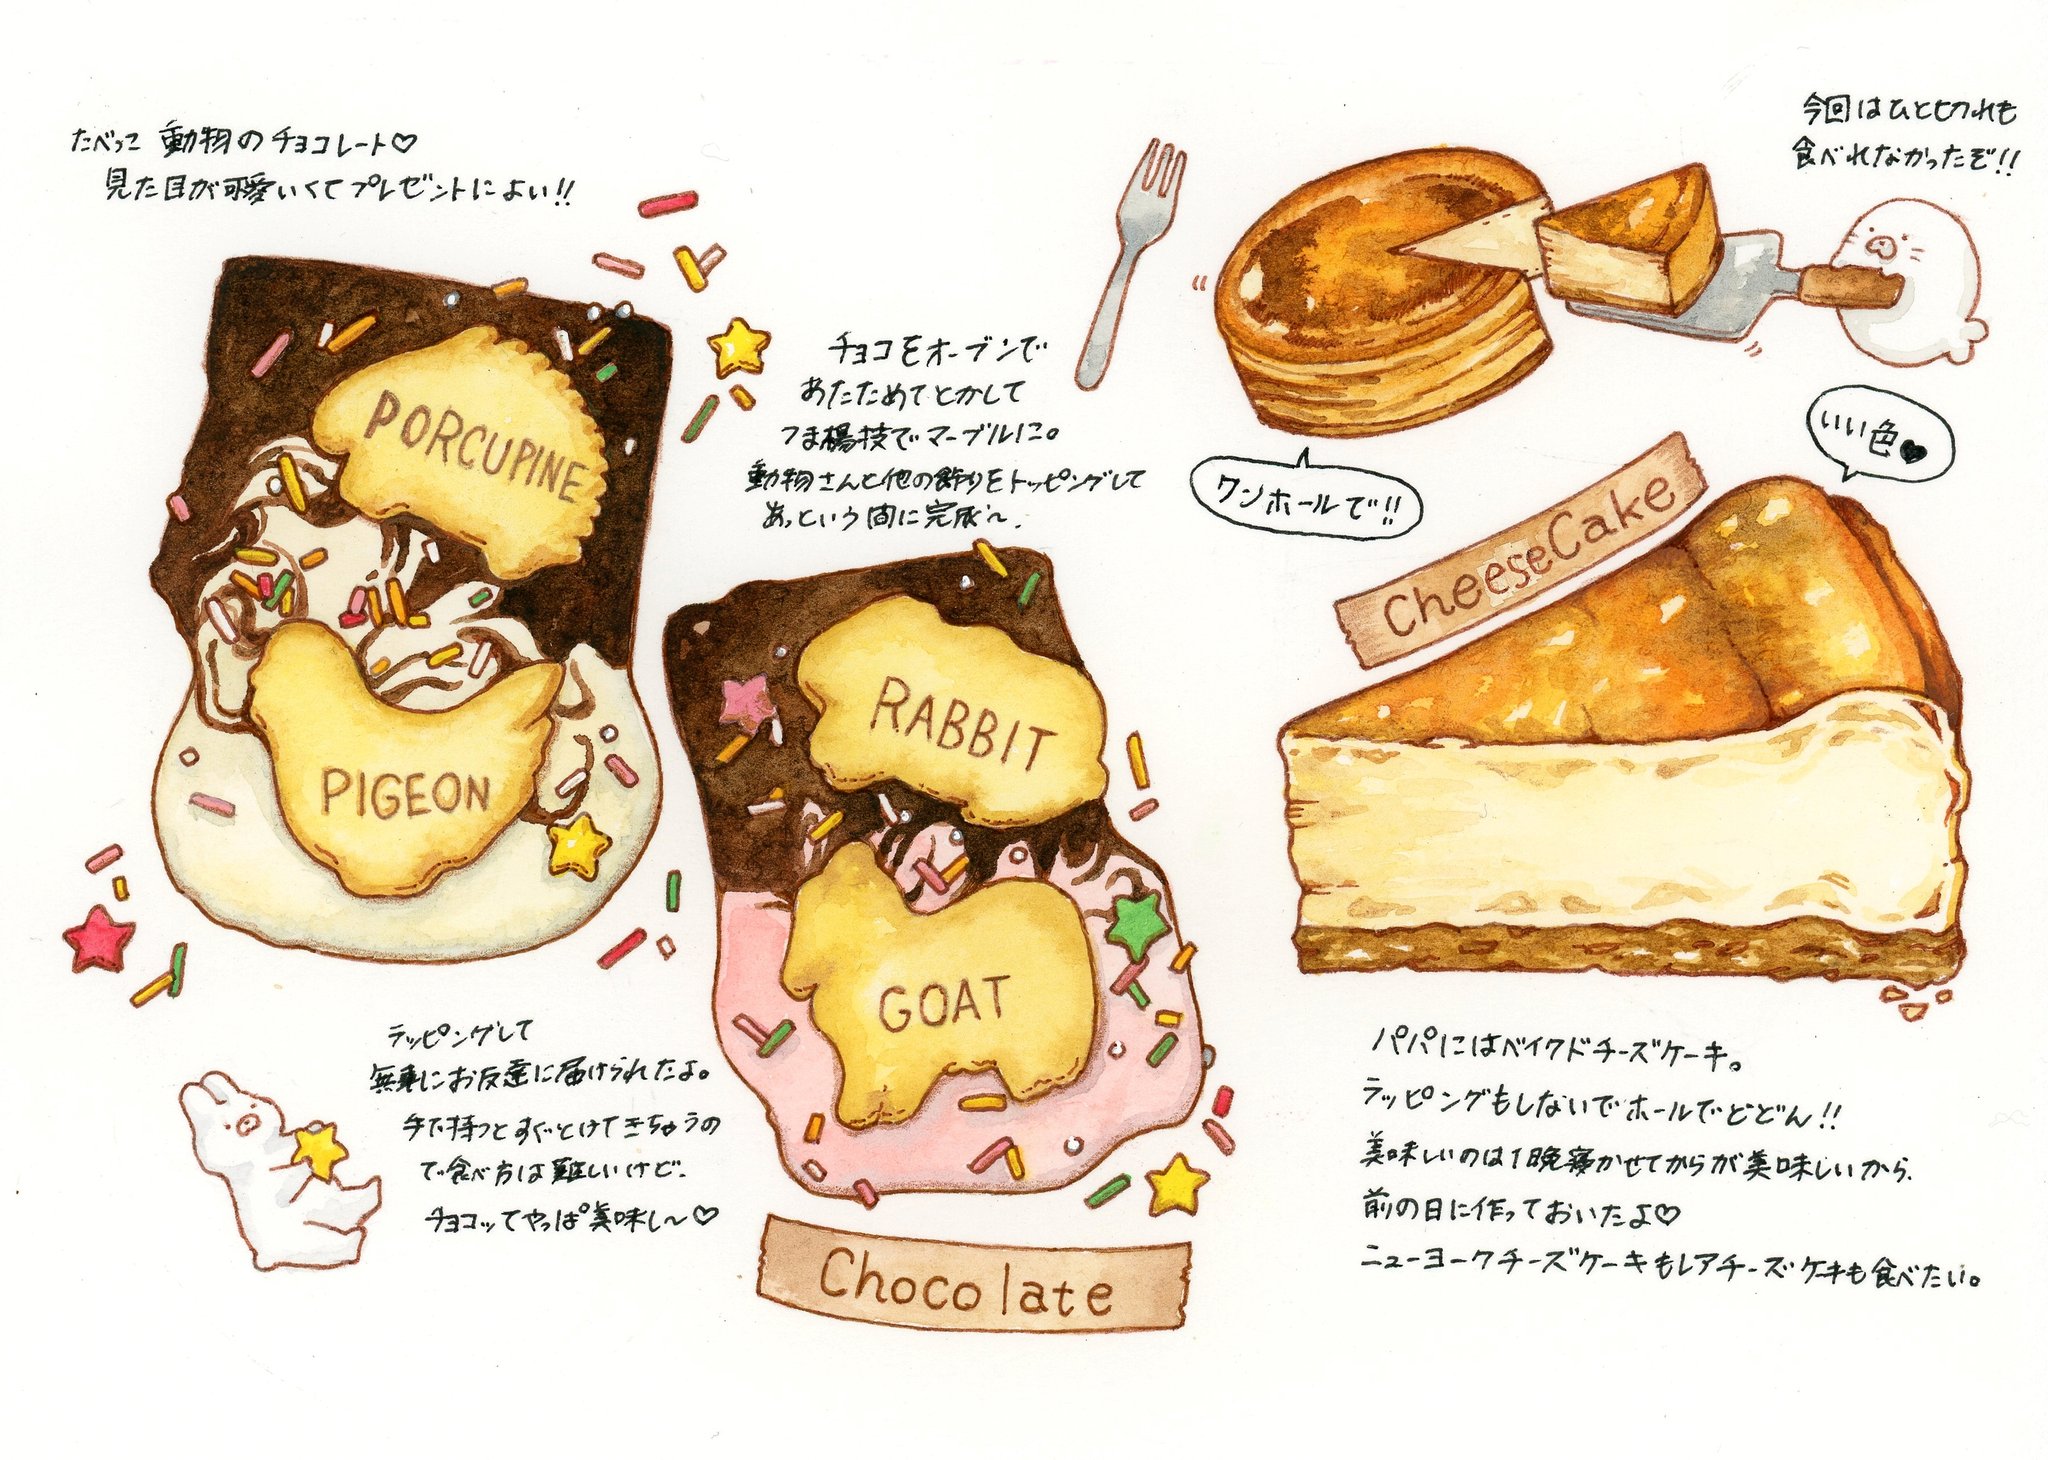 たべっこ 動物のチョコレート♡
見た目が可愛いくてプレゼントによい!!
PORCUPINE
PIGEON
チョコをオーブンで
あたためてとかして
つま楊枝でマーブルに。
動物さんと他の飾りをトッピングして
あっという間に完成〜.
RABBIT
GOAT
ラッピングして
無事にお友達に届けられたよ。
手で持つとすぐとけてきちゃうの
で食べ方は難しいけど、
チョコッてやっぱ美味し〜♡
Chocolate
今回はひと切れも
食べれなかったぞ!!
ワンホールで!!
いい色♥
CheeseCake
パパにはベイクドチーズケーキ。
ラッピングもしないでホールでどどん!!
美味しいのは1晩寝かせてからが美味しいから、
前の日に作っておいたよ♡
ニューヨークチーズケーキもレアチーズケーキも食べたい。